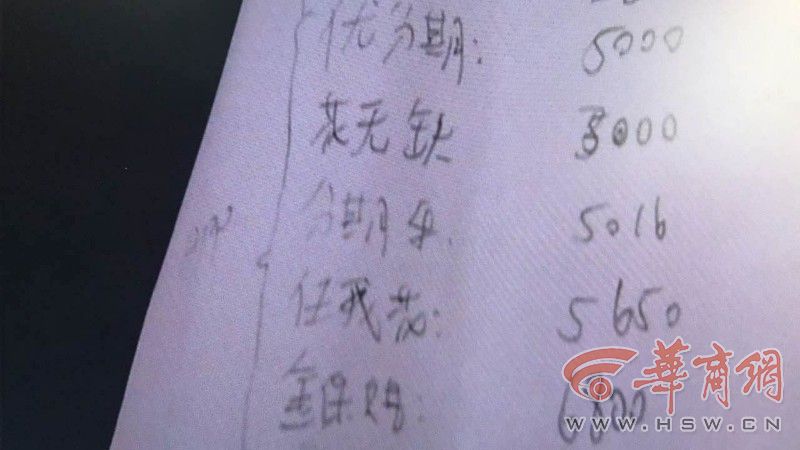 优分期: 5000
花无缺 3000
分期乐. 5016
任我花: 5650
: 6800
華商網
WWW.HSW.CN